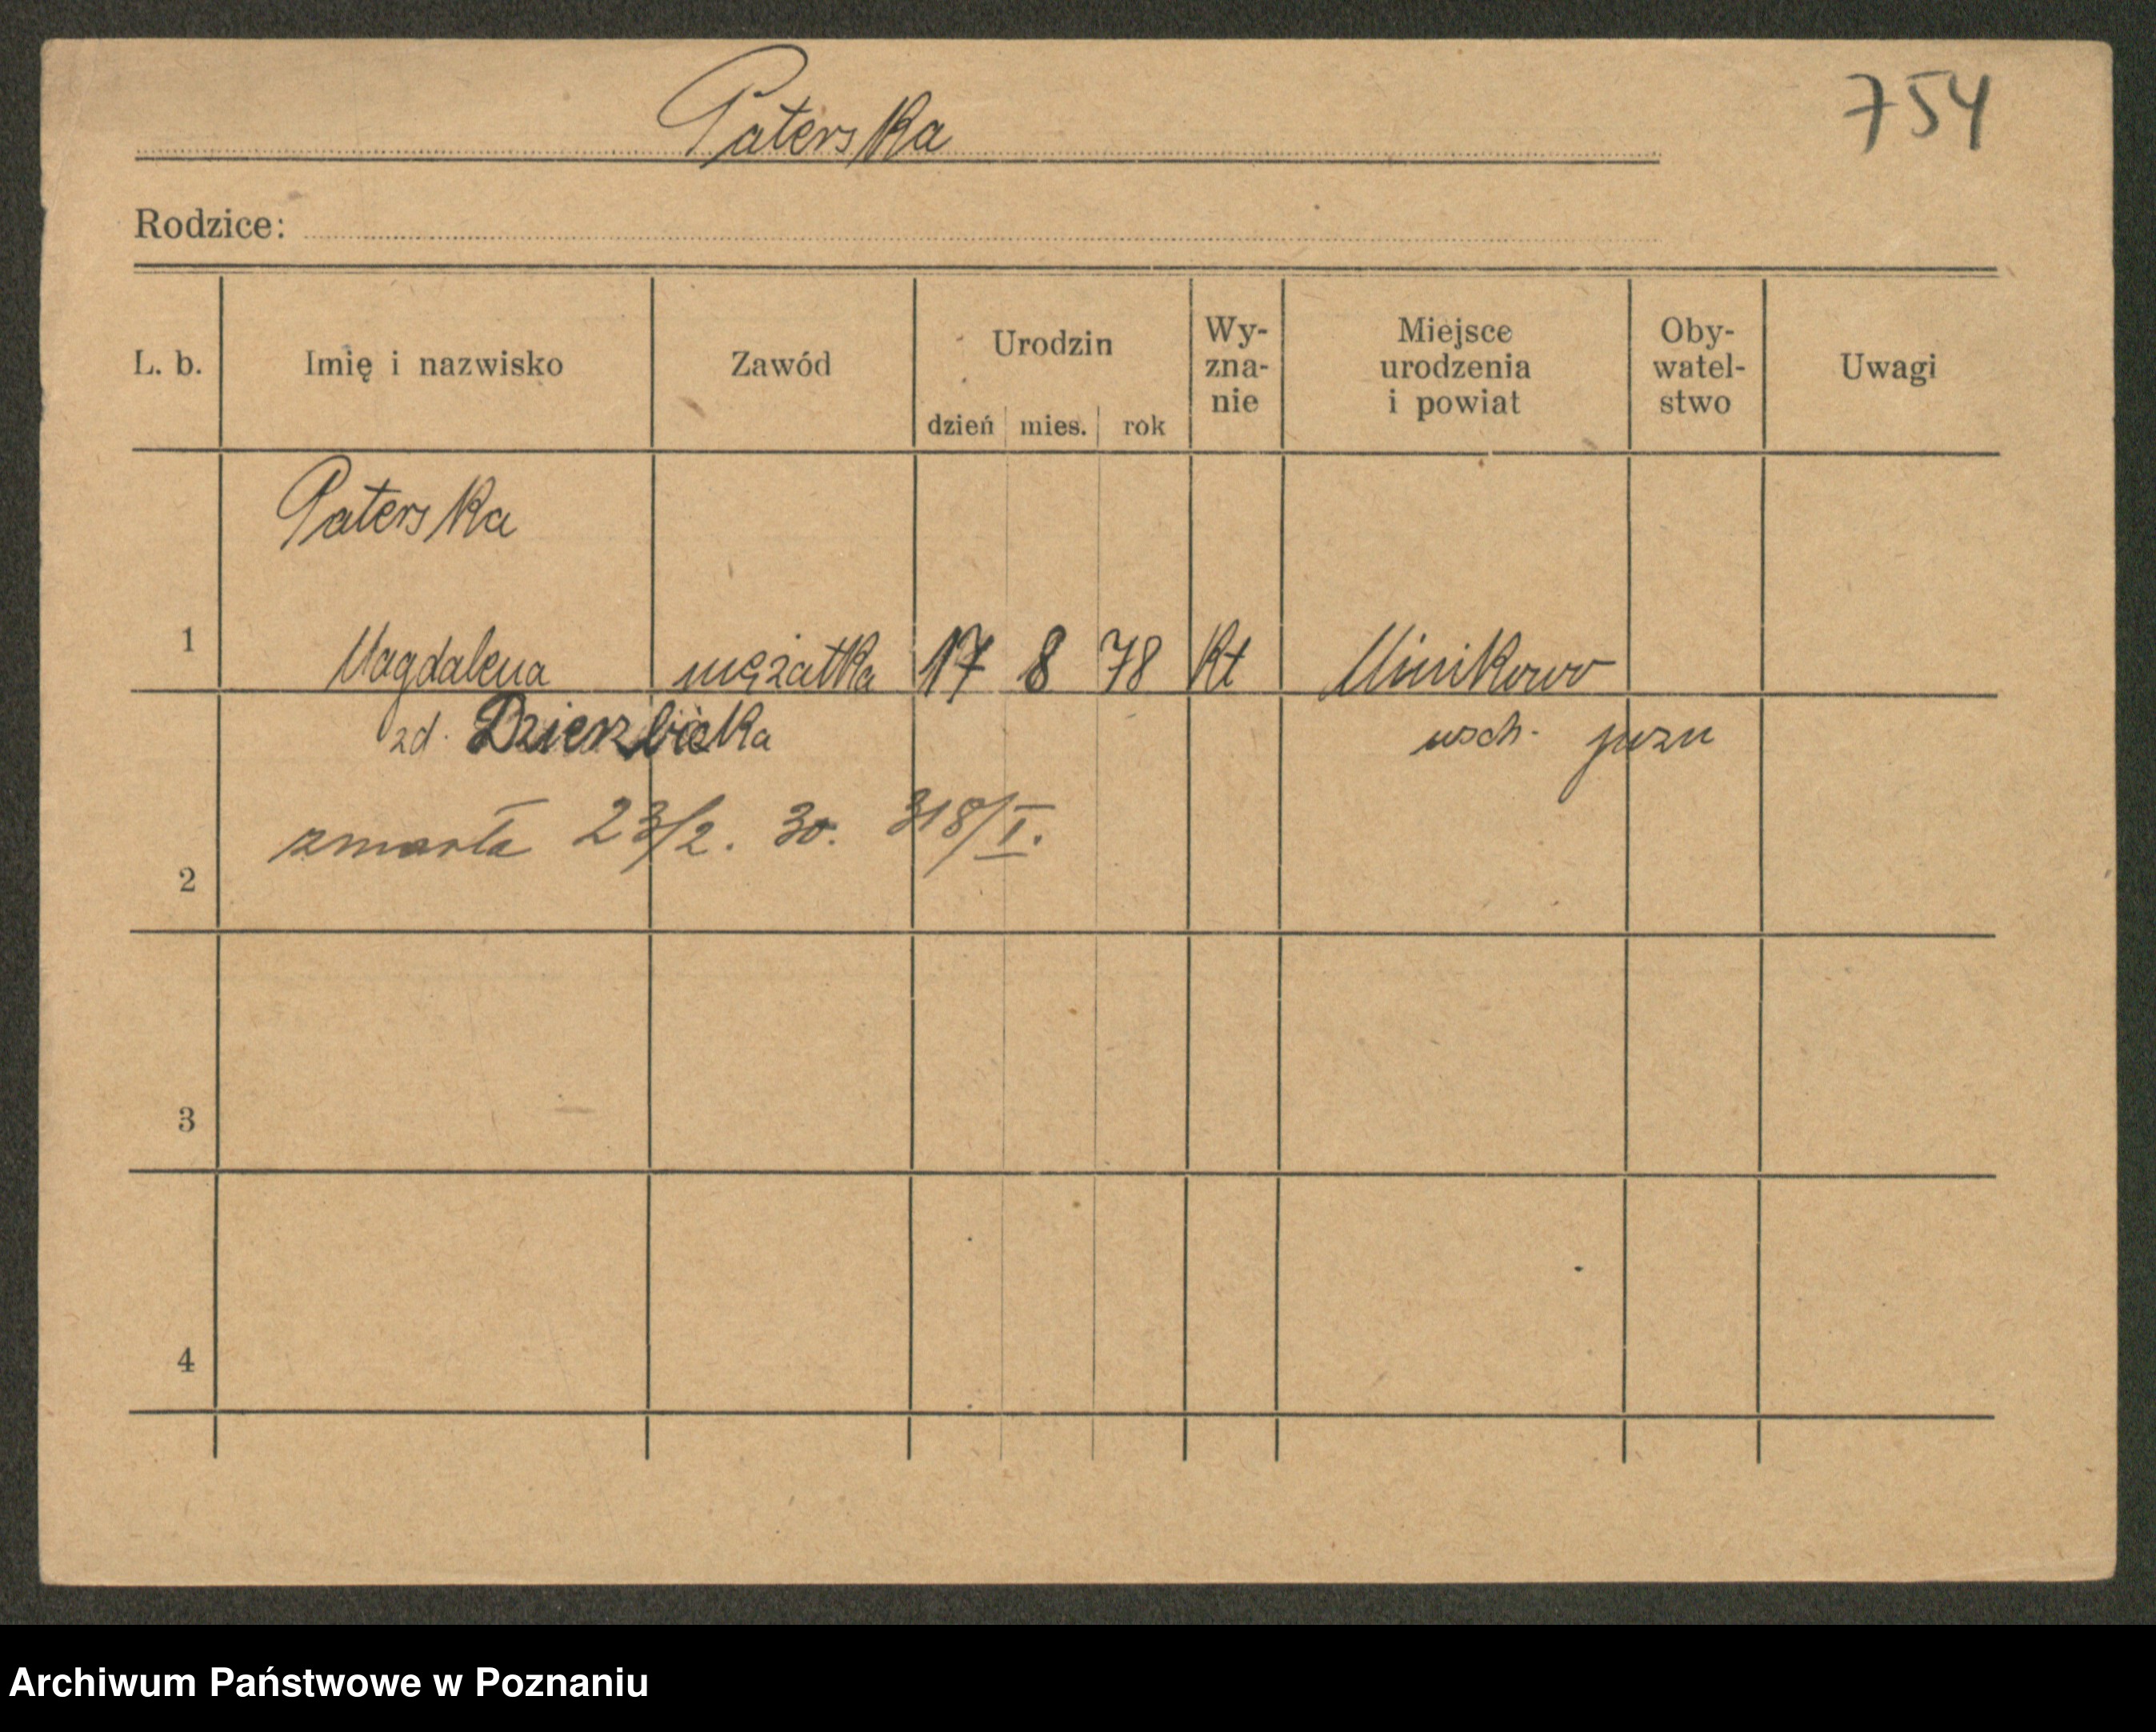 Paterska
754
Rodzice:
L. b.
Imię i nazwisko
Zawód
Urodzin
dzień mies. rok
Wy-
zna-
nie
Miejsce
urodzenia
i powiat
Oby-
watel-
stwo
Uwagi
Paterska
1 Magdalena mężatka 17 8 78 Kt Minikowo
zd. Dzierzbicka wsch. pozn
zmarła 23/2. 30. 318/I.
2
3
4
Archiwum Państwowe w Poznaniu